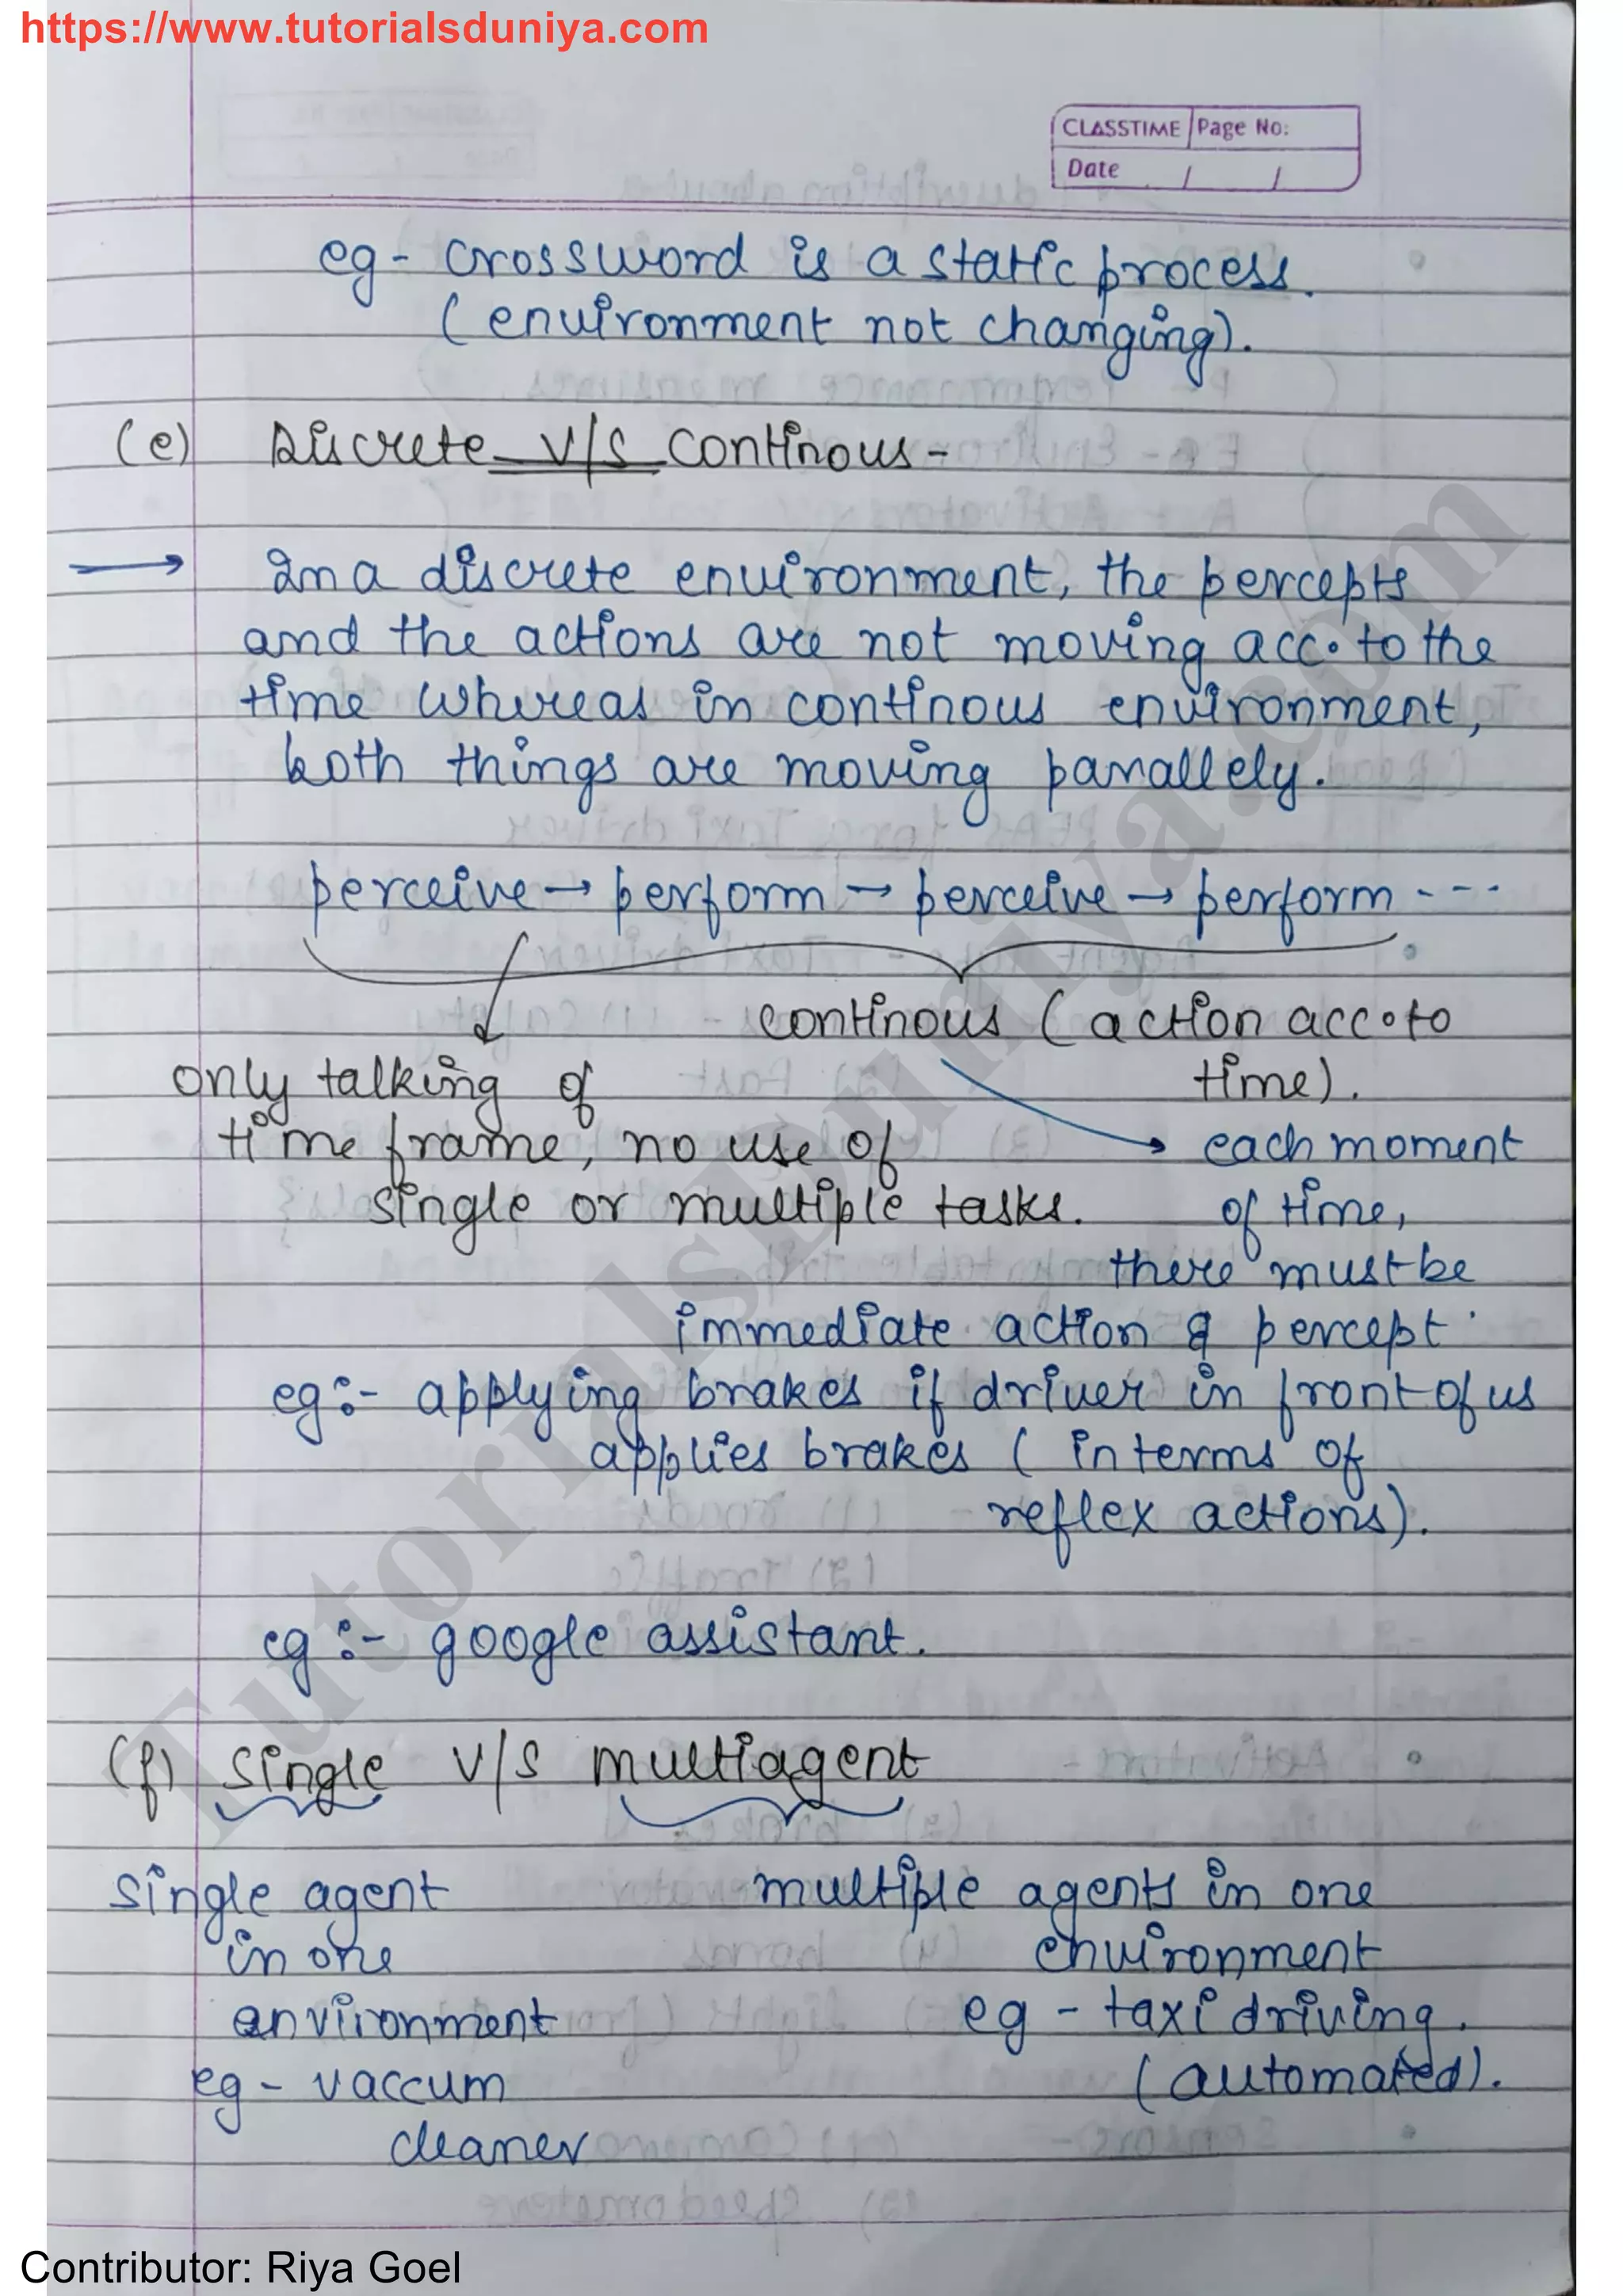 https://www.tutorialsduniya.com
CLASSTIME Page No:
Date / /
eg - crossword is a static process.
(environment not changing).
(e) Discrete v/s continous -
→ In a discrete environment, the percepts
and the actions are not moving acc. to the
time whereas in continous environment,
both things are moving parallely.
perceive → perform → perceive → perform ---
continous (action acc. to
time).
only talking of
time frame, no use of
single or multiple tasks.
→ each moment
of time,
there must be
immediate action & percept.
eg:- applying brakes if driver in front of us
applies brakes (in terms of
reflex actions).
eg:- google assistant.
(f) single v/s multiagent
single agent
in one
environment
eg - vaccum
cleaner
multiple agents in one
environment
eg - taxi driving.
(automated).
TutorialsDuniya.com
Contributor: Riya Goel